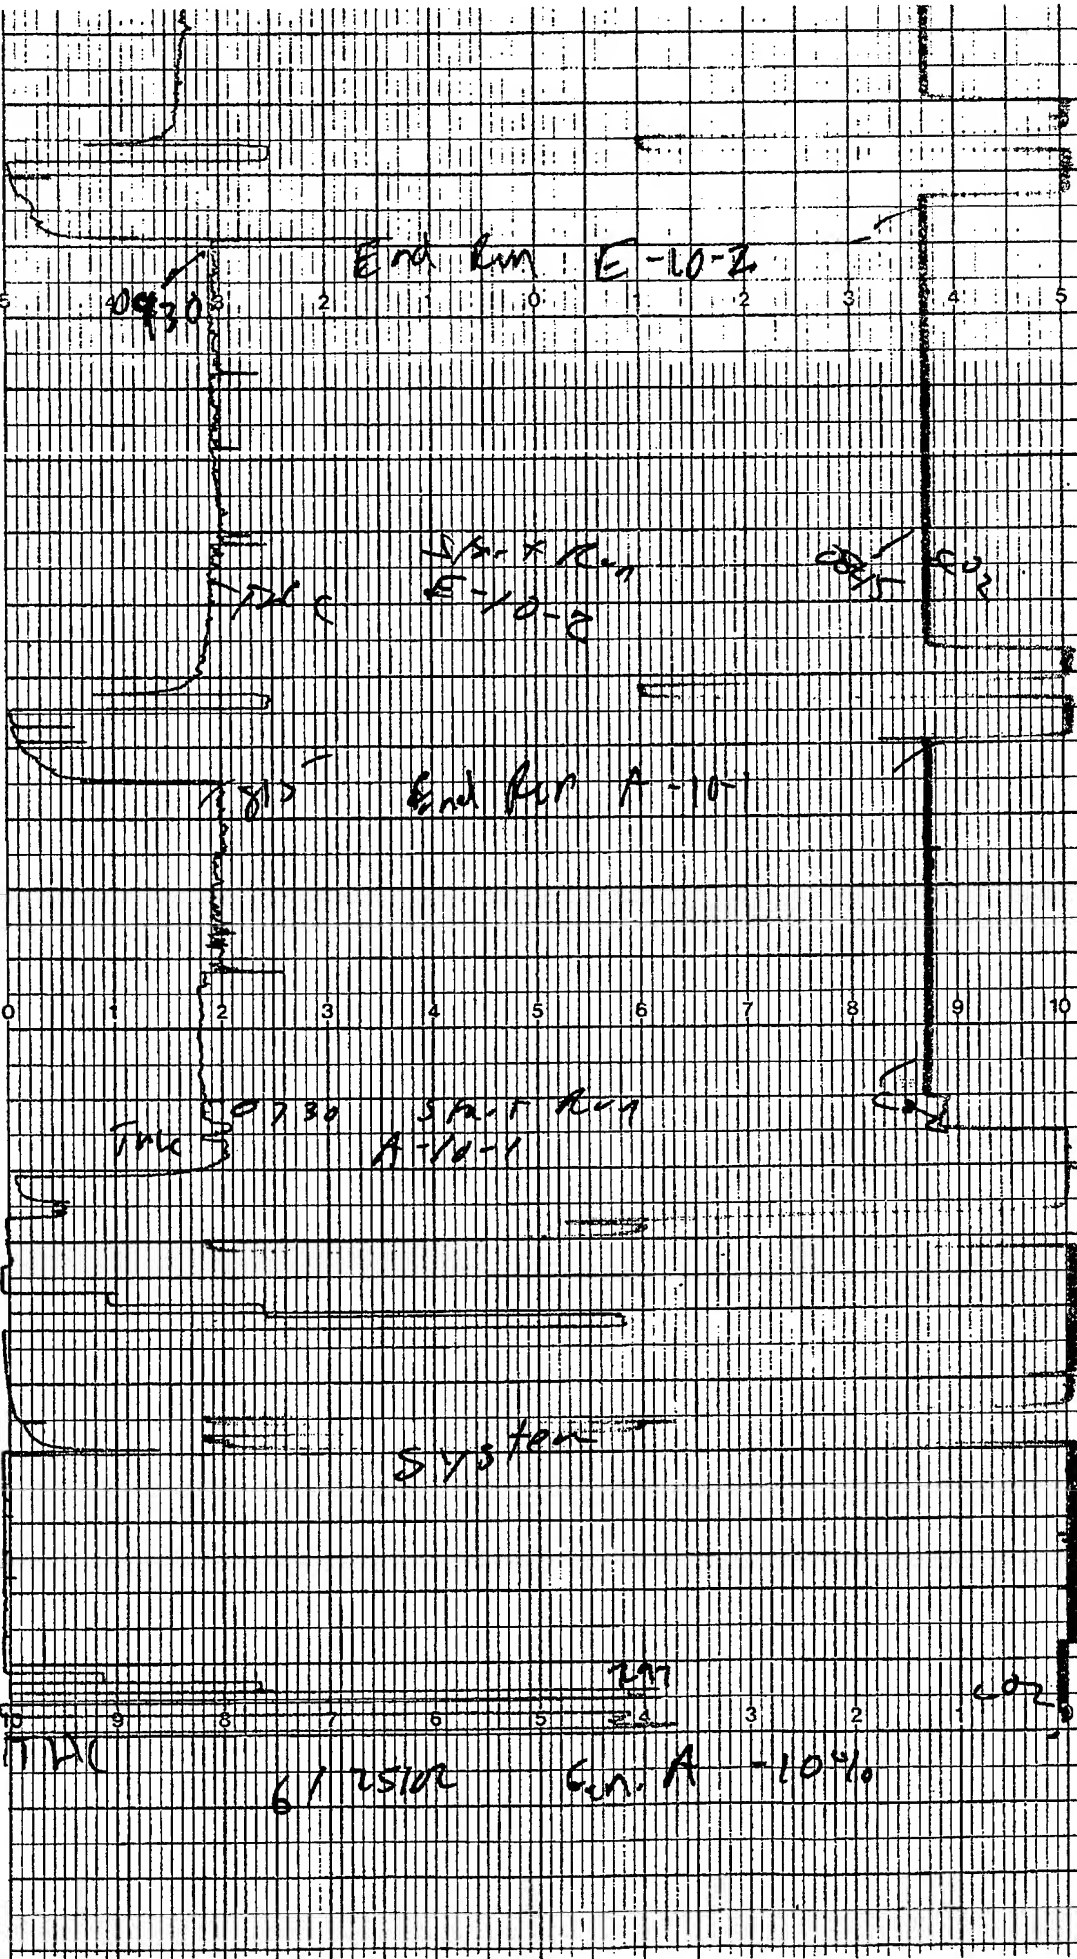 End Run E-10-2
5 4 3 2 1 0 1 2 3 4 5
0930
Start Run
E-10-2
CO2
THC
End Run A-10-1
0 1 2 3 4 5 6 7 8 9 10
0730 Start Run
A-10-1
THC
System
CO2
10 9 8 7 6 5 4 3 2 1
THC
6/25/02 Gen. A -10%